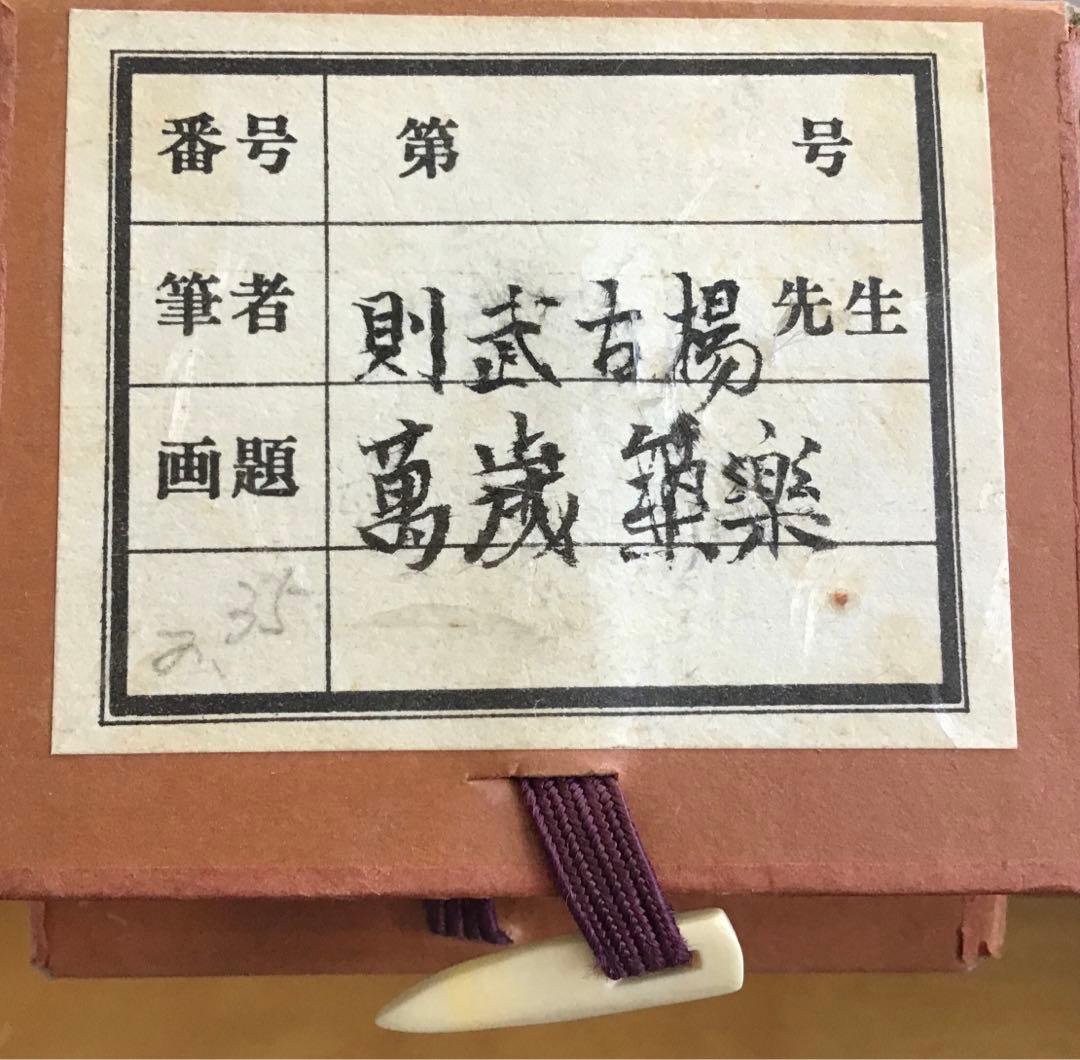 番号 第 号
筆者 則武古楊先生
画題 萬歳 樂
35